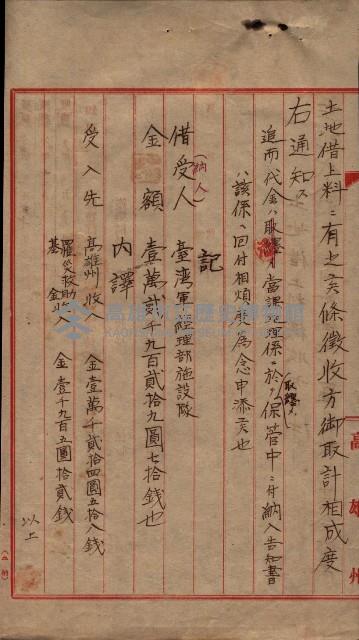 土地借上料ニ有之矣條徵收方御取計相成度
右通知ス
追而代金ハ取纏メ當課經理係ニ於テ保管中ニ付納入告知書
ハ該係ヘ回付相煩度為念申添矣也
記
借受人 臺灣軍經理部施設隊
(納人)
金額 壹萬貳千九百貳拾九圓七拾錢也
內譯
受入先 高雄州收入 金壹萬千貳拾四圓五拾八錢
罹災救助基金收入 金壹千九百五圓拾貳錢
以上
高雄州